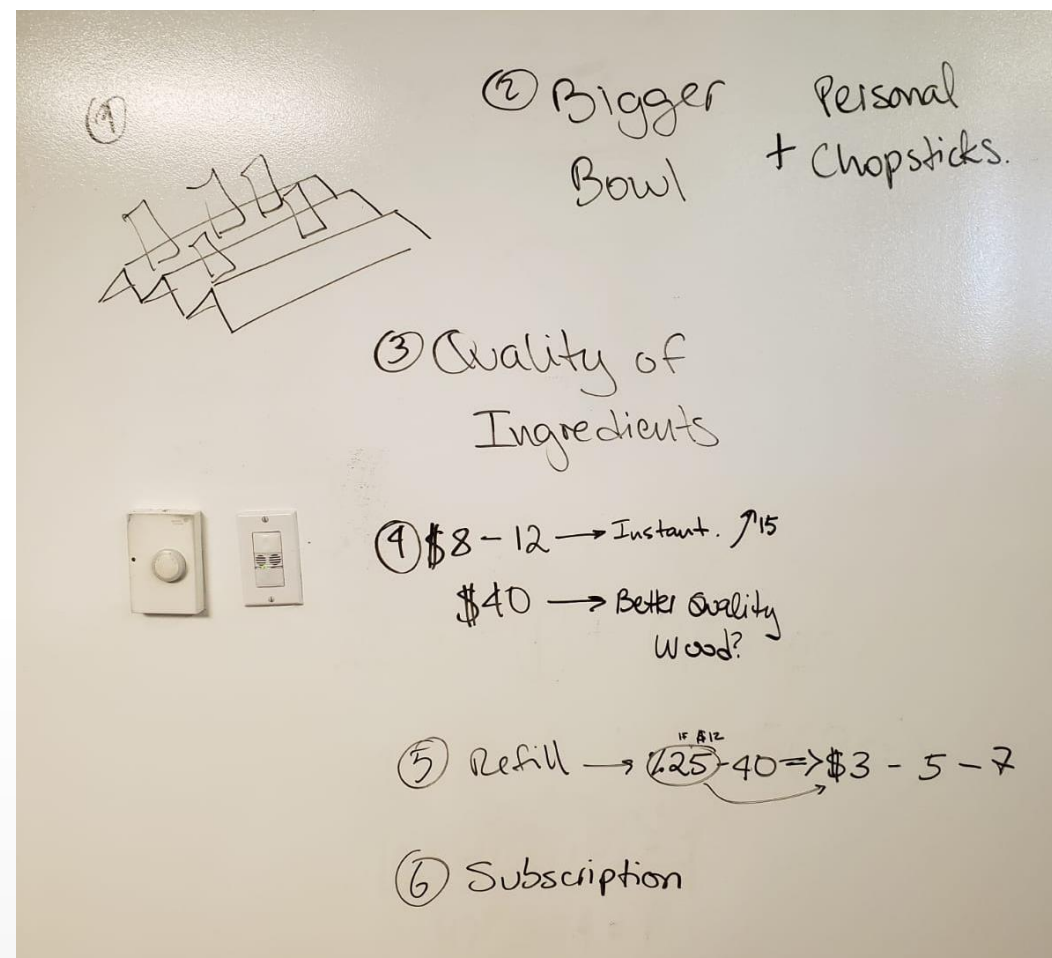 ①
② Bigger Bowl + Personal Chopsticks.
③ Quality of
Ingredients
④ $8 - 12 → Instant. ↗15
$40 → Better Quality
Wood?
IF $12
⑤ Refill → %25 - 40 => $3 - 5 - 7
⑥ Subscription